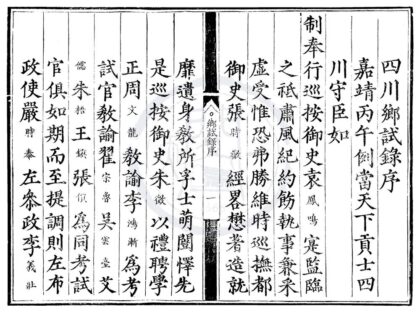 四川鄉試錄序
嘉靖丙午例當天下貢士四
川守臣如
制奉行巡按御史袁鳳鳴寔監臨
之祗肅風紀約飭執事兼采
虛受惟恐弗勝維時巡撫都
御史張時徹經畧懋著造就
鄉試錄序 一
靡遺身教所孚士萌闓懌先
是巡按御史朱以禮聘學
正周文龍教諭李鴻漸為考
試官教諭翟宗魯吳雲臺艾
儒朱王張為同考試
官俱如期而至提調則左布
政使嚴時泰左參政李義壯